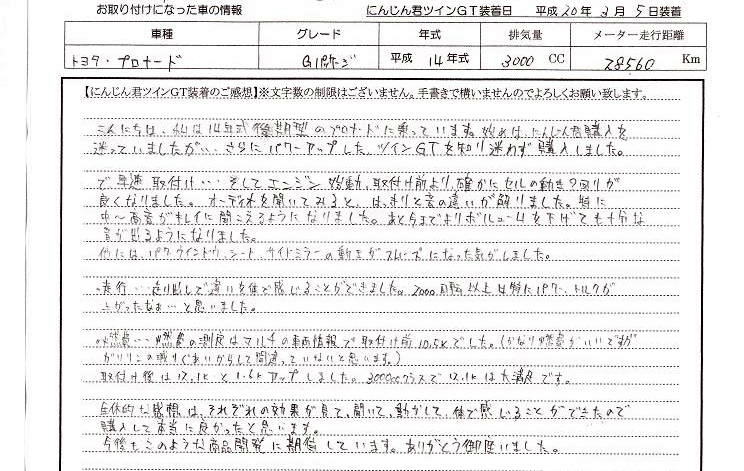 お取り付けになった車の情報　にんじん君ツインGT装着日　平成20年2月5日装着
車種　グレード　年式　排気量　メーター走行距離
トヨタ・プロナード　Gパッケージ　平成 14年式　3000 CC　28560 Km
【にんじん君ツインGT装着のご感想】※文字数の制限はございません。手書きで構いませんのでよろしくお願い致します。
こんにちは、私は14年式後期型のプロナードに乗っています。始めは、にんじん君購入を
迷っていましたが…さらにパワーアップした、ツインGTを知り迷わず購入しました。
で早速取付け…そしてエンジン始動、取付け前より、確かにセルの動き?回りが
良くなりました。オーディオを聞いてみると、はっきりと音の違いが解りました。特に
中〜高音がキレイに聞こえるようになりました。あと今までよりボリュームを下げても十分な
音が出るようになりました。
他には、パワーウインドウ、シート、サイドミラーの動きがスムーズになった気がしました。
走行…走り出しで違いを体で感じることができました。2000回転以上は特にパワー、トルクが
上がったなぁ…と思いました。
燃費…燃費の測定はマルチの車両情報で取付け前10.5kでした。(かなり燃費がいいですが
ガソリンの減りぐあいからして間違っていないと思います。)
取付け後は12.1kと1.6kアップしました。3000ccクラスで12.1kは大満足です。
全体的な感想は、それぞれの効果が見て、聞いて、動かして、体で感じることができたので
購入して本当に良かったと思います。
今後もこのような商品開発に期待しています。ありがとう御座いました。